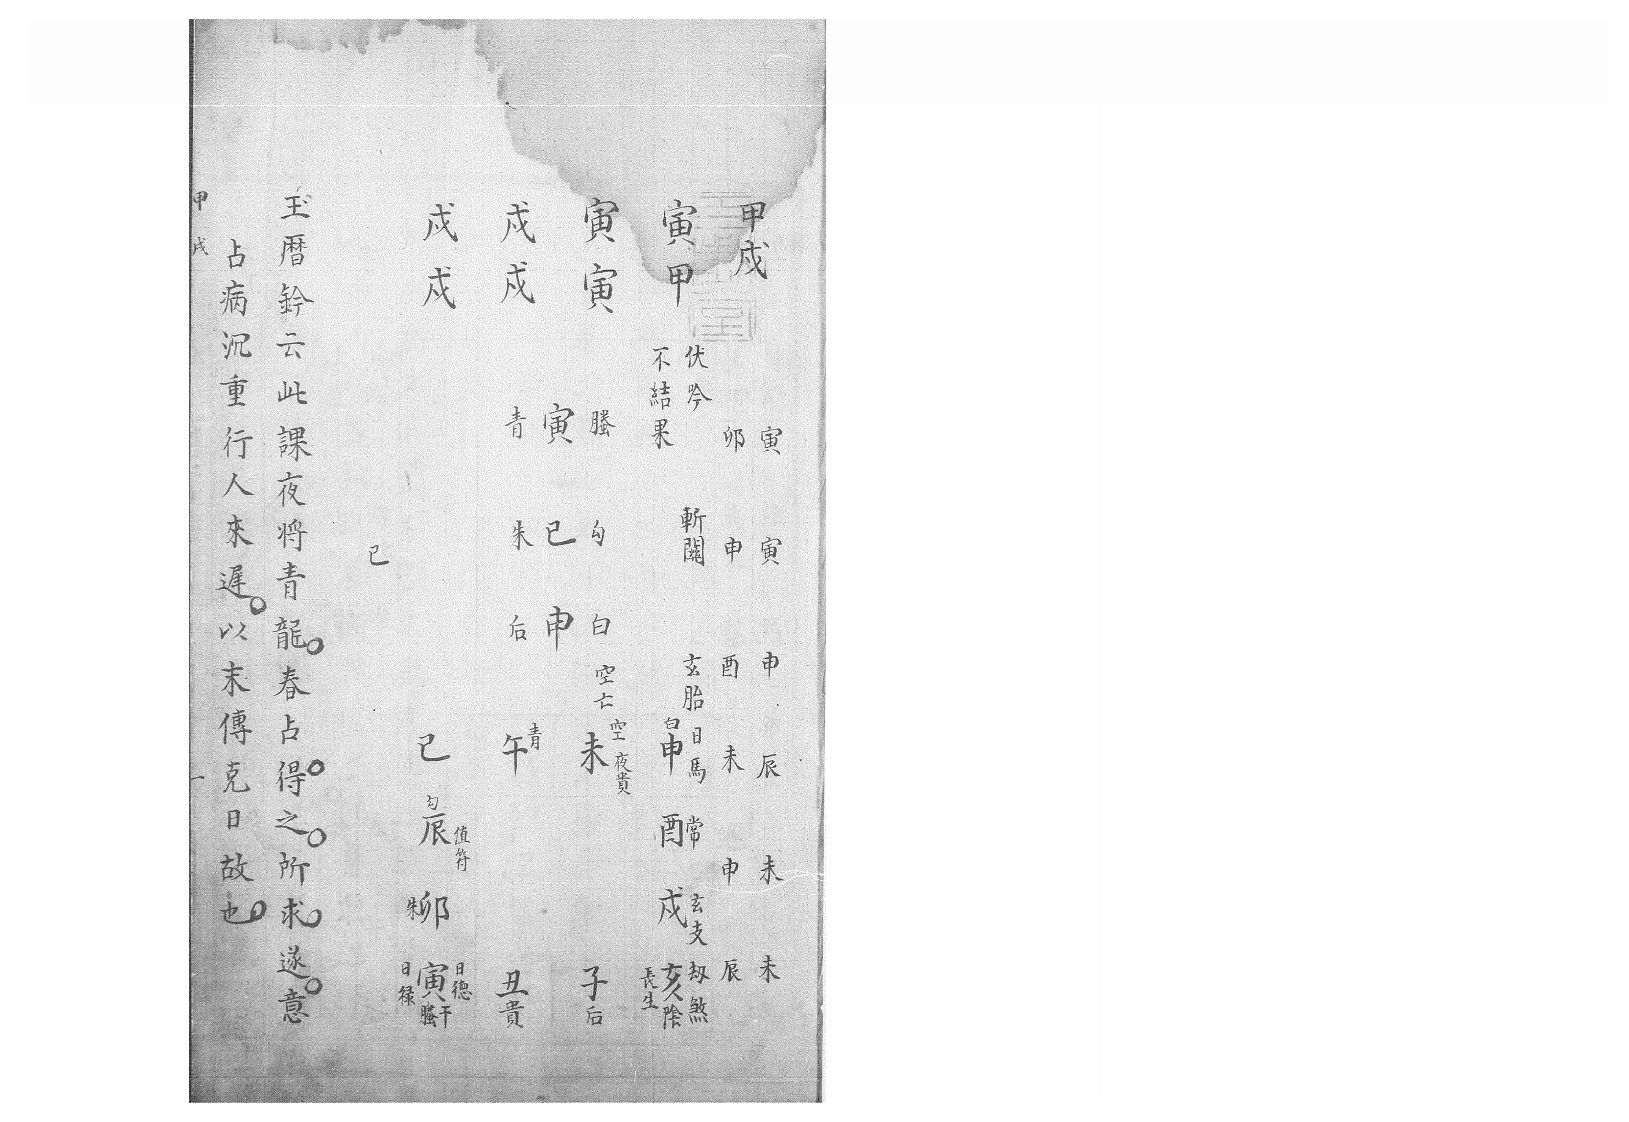 甲戌
寅 寅 申 辰 未 未
卯 申 酉 未 申 辰
伏吟 斬關 玄胎 日馬 常 玄支 刼煞
不結果
寅甲 白申 酉 戌 亥陰 長生
寅寅 螣 勾 白 空亡 空 夜貴 未 子后
寅 巳 申
戌戌 青 朱 后 青 午 丑貴
戌戌 巳 勾辰 值符 朱卯 寅 日德 日祿 螣 干
已
玉曆鈐云此課夜将青龍春占得之所求遂意
占病沉重行人來遲以末傳克日故也
甲戌 一